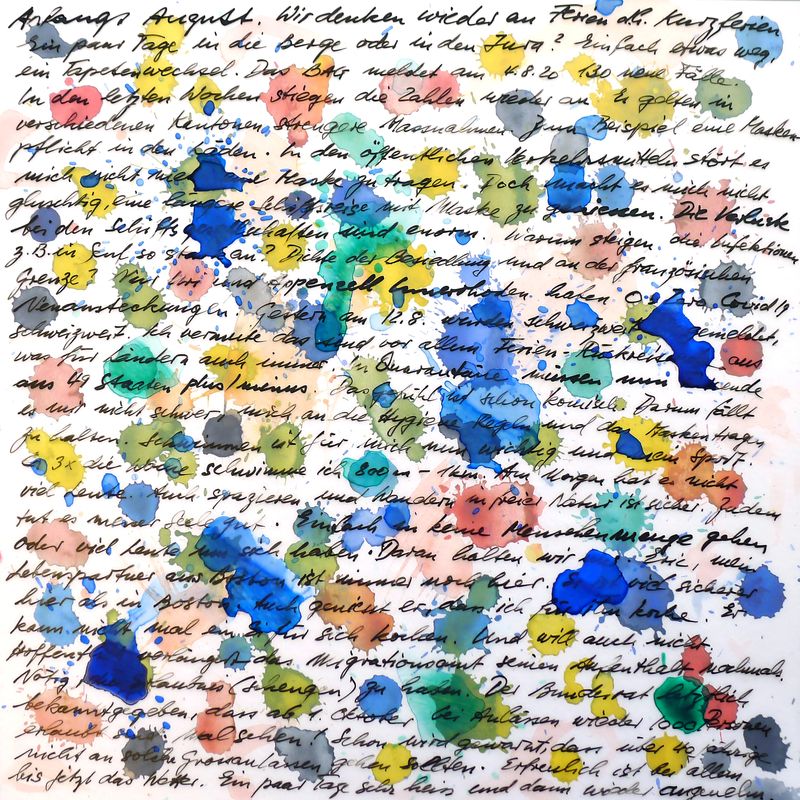 Anfangs August. Wir denken wieder an Ferien d.h. Kurzferien
Ein paar Tage in die Berge oder in den Jura? Einfach etwas weg,
ein Tapetenwechsel. Das BAG meldet am 4.8.20 130 neue Fälle
In den letzten Wochen stiegen die Zahlen wieder an. Es gelten in
verschiedenen Kantonen strengere Massnahmen zum Beispiel eine Masken
pflicht in den Läden. In den öffentlichen Verkehrsmitteln stört es
mich nicht Maske zu tragen. Doch macht es mich nicht
gluschtig, eine längere Schiffsreise mit Maske zu geniessen. Die Verluste
bei den Schiffs sind enorm. Warum steigen die Infektionen
z.B. in Genf so stark an? Dichte der Besiedlung und an der französischen
Grenze? Nur Uri und Appenzell Innerrhoden haben Covid19
Neuansteckungen. Gestern am 12.8. wurden schweizweit gemeldet,
schweizweit. Ich vermute das sind vor allem Ferien-Rückreisende aus
was für Ländern auch immer. In Quarantäne müssen nun
aus 49 Staaten plus/minus. Das Gefühl ist schon komisch. Darum fällt
es mir nicht schwer, mich an die Hygiene Regeln und das Maskentragen
zu halten. Schwimmen ist für mich nun wichtig und mein Sport.
3x die Woche schwimme ich 800m - 1km. Am Morgen hat es nicht
viel Leute. Auch spazieren und Wandern in freier Natur ist sicher. Zudem
tut es meiner Seele gut. Einfach in keine Menschenmenge gehen
oder viel Leute um sich haben. Daran halten wir Eric, mein
Lebenspartner aus Boston ist immer noch hier. Er viel sicherer
hier als in Boston. Auch geniesst er, dass ich für ihn koche. Er
kann nicht mal ein Ei für sich kochen. Und will auch nicht
Hoffentlich verlängert das Migrationsamt seinen Aufenthalt nochmals.
Nötig Erlaubnis (Schengen) zu haben. Der Bundesrat hat
bekanntgegeben, dass ab 1. Oktober bei Anlässen wieder 1000 Personen
erlaubt mal sehen! Schon wird gewarnt, dass über 40 jährige
nicht an solche Grossanlässen gehen sollten. Erfreulich ist bei allem
bis jetzt das Wetter. Ein paar Tage sehr heiss und dann wieder angenehm.